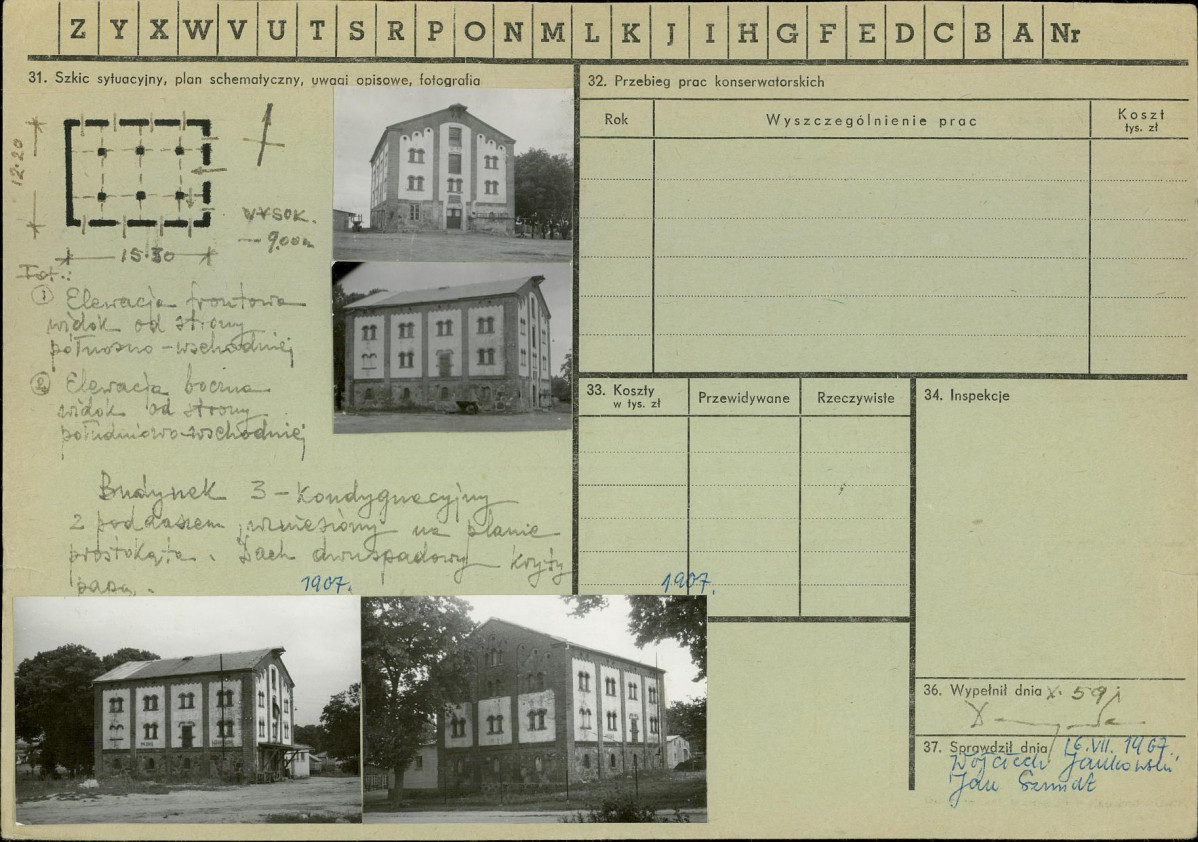 Z Y X W V U T S R P O N M L K J I H G F E D C B A Nr
31. Szkic sytuacyjny, plan schematyczny, uwagi opisowe, fotografia
12.20
WYSOK.
9.00m
15.30
Fot.:
1 Elewacja frontowa
widok od strony
północno-wschodniej
2 Elewacja boczna
widok od strony
południowo-wschodniej
Budynek 3-kondygnacyjny
z poddaszem, wzniesiony na planie
prostokąta. Dach dwuspadowy kryty
papą.
1967.
1967.
32. Przebieg prac konserwatorskich
Rok
Wyszczególnienie prac
Koszt
tys. zł
33. Koszty
w tys. zł
Przewidywane
Rzeczywiste
34. Inspekcje
36. Wypełnił dnia X. 59
37. Sprawdził dnia 16.VII.1967
Wojciech Jankowski
Jan Szmidt